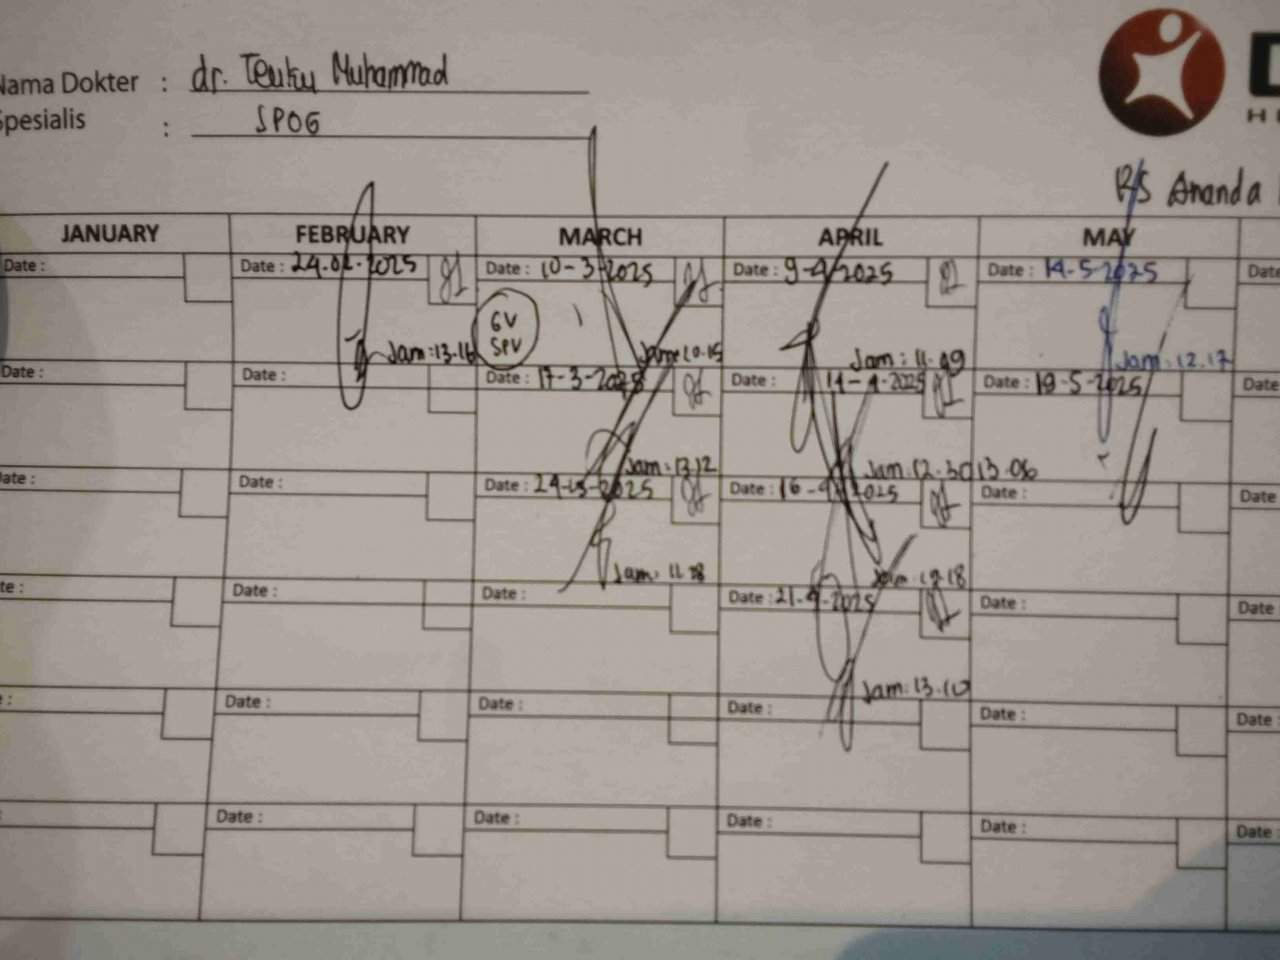 Nama Dokter : dr. Teuku Muhammad
Spesialis : SPOG
RS Ananda
JANUARY FEBRUARY MARCH APRIL MAY
Date : Date : 24.02.2025 Date : 10-3-2025 Date : 9-4-2025 Date : 14-5-2025
GV
SPV
Jam : 13.16 Jam : 10.15 Jam : 11.49 Jam : 12.17
Date : Date : Date : 17-3-2025 Date : 14-4-2025 Date : 19-5-2025
Jam : 13.12 Jam : 12.30 13.06
Date : Date : Date : 24-3-2025 Date : 16-4-2025 Date : Date :
Jam : 11.18
Date : Date : Date : 21-4-2025 Date : Date :
Jam : 13.10
Date : Date : Date : Date : Date :
Date : Date : Date : Date : Date :